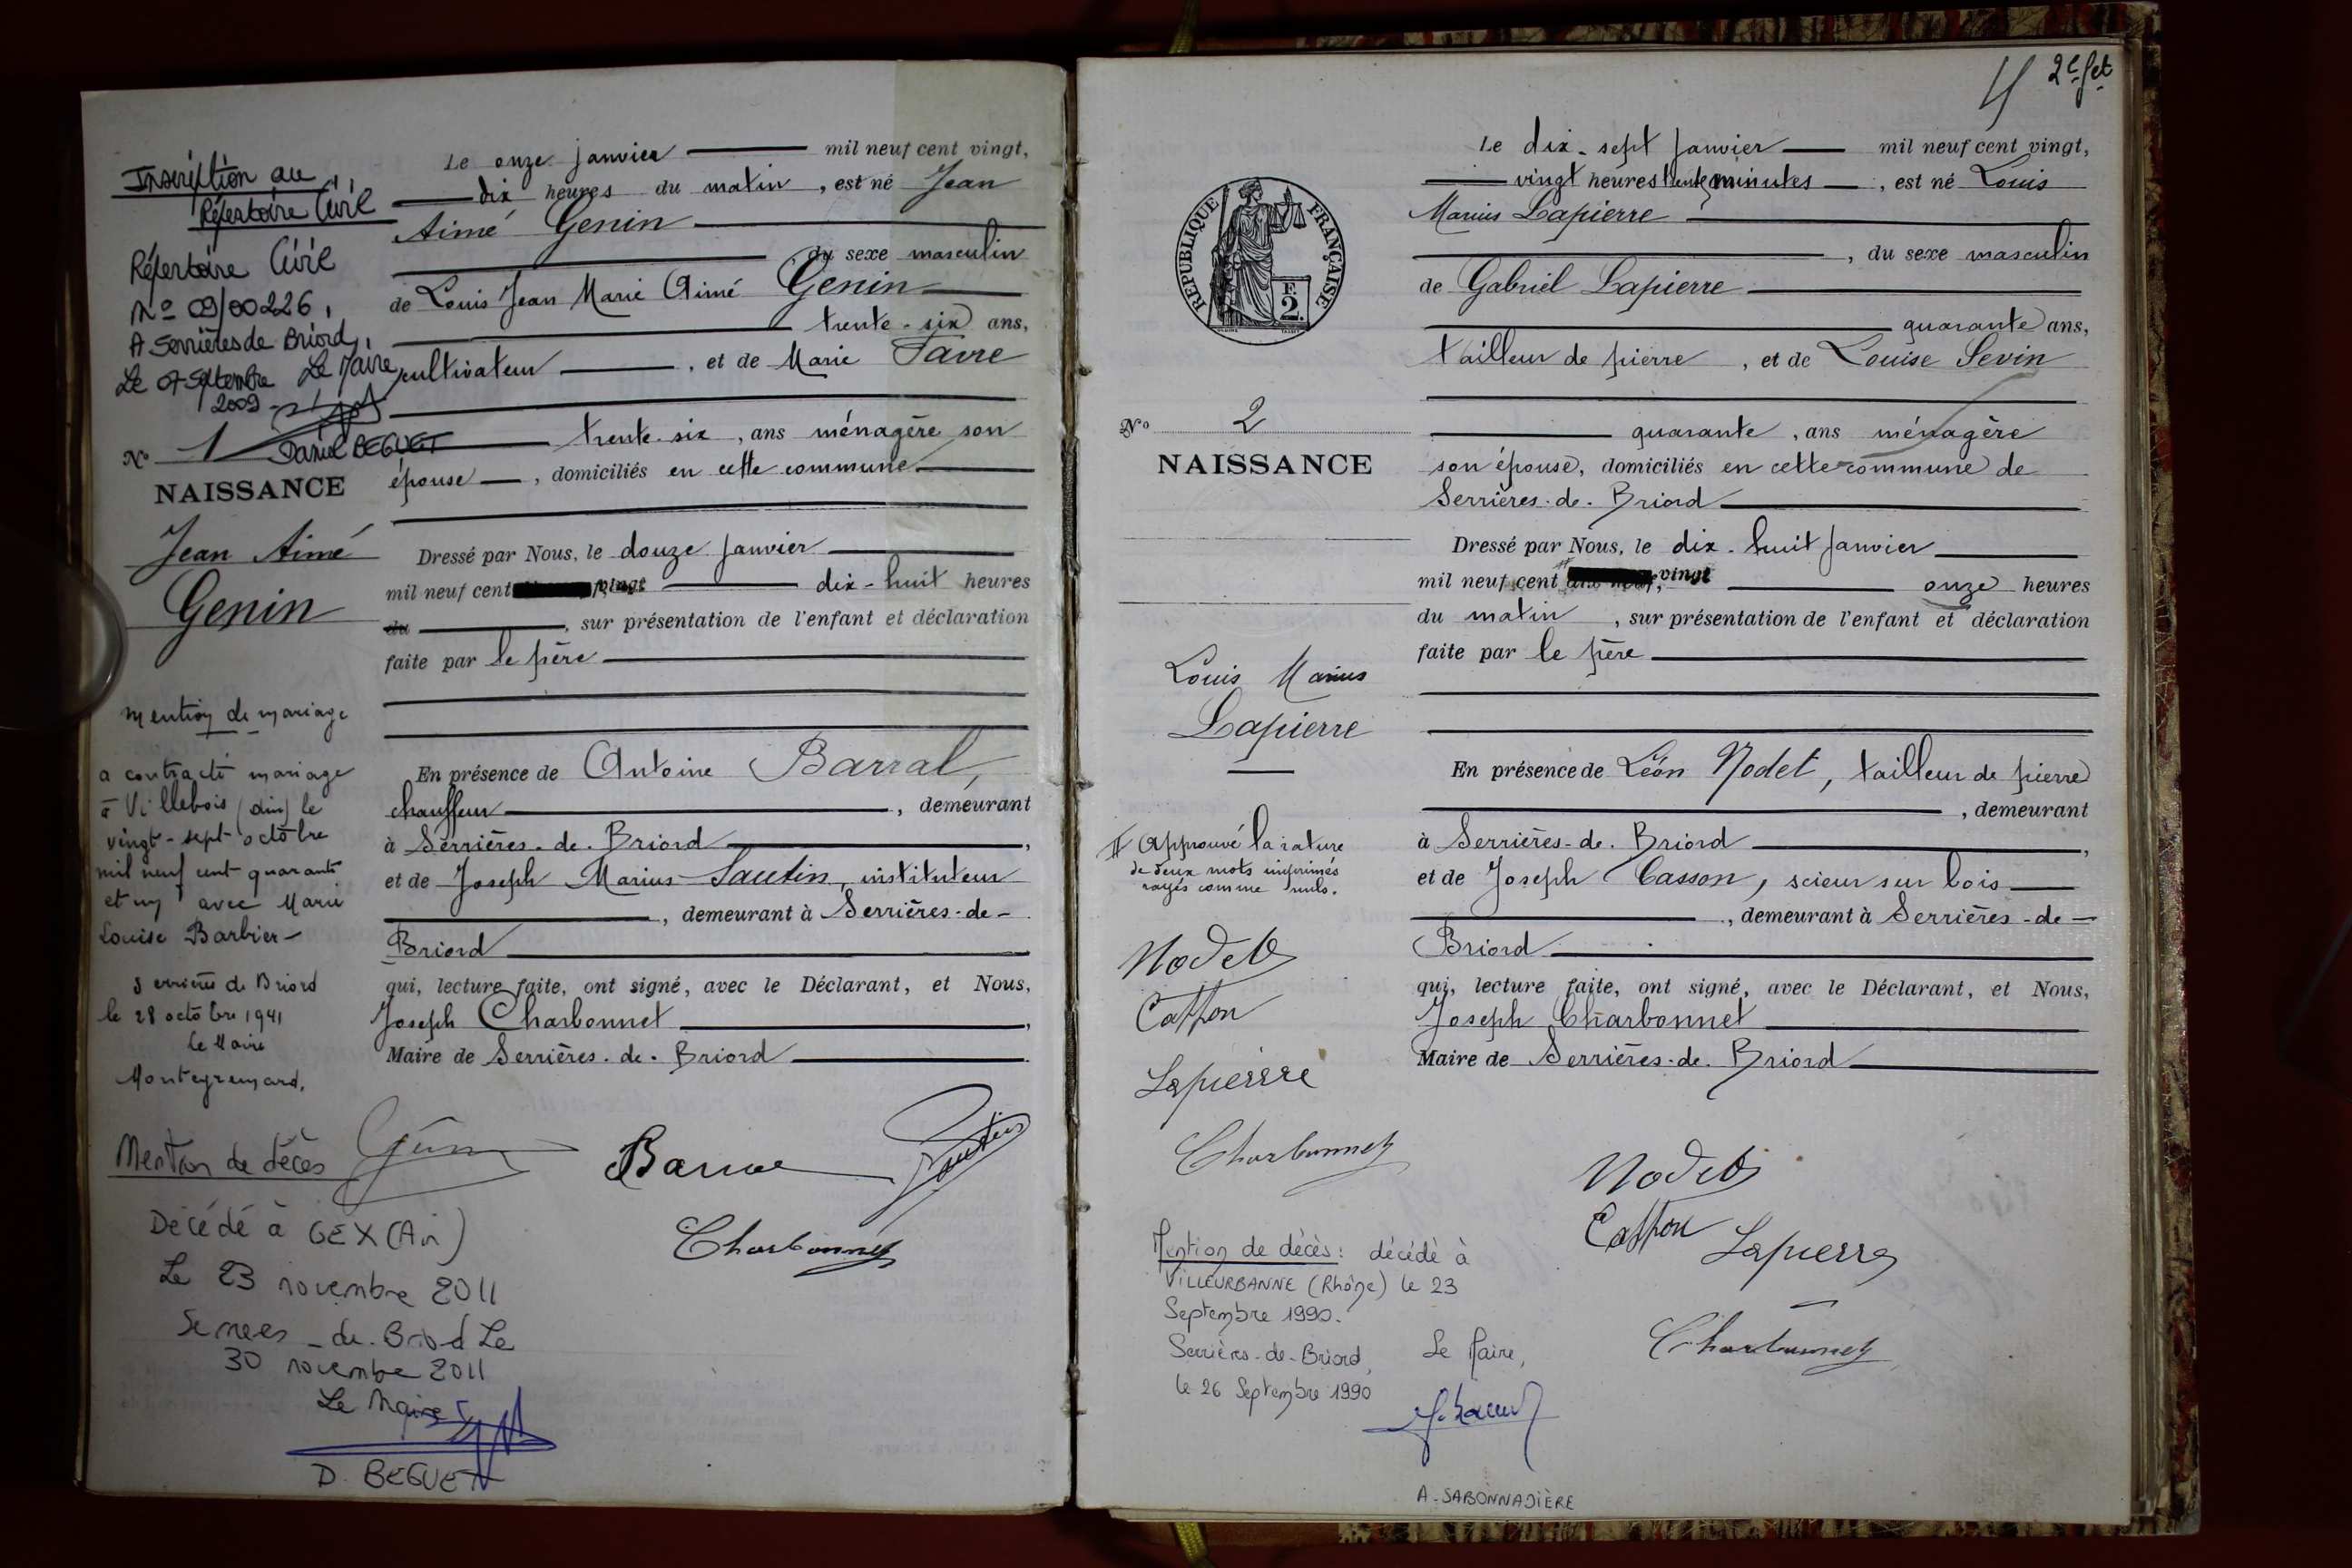 Inscription au
Répertoire Civil
Répertoire Civil
No 09/00226,
A Serrières de Briord,
Le 07 Septembre Le Maire
2009
Daniel BEGUET
No 1
NAISSANCE
Jean Aimé
Genin
Mention de mariage
a contracté mariage
à Villebois (Ain) le
vingt-sept octobre
mil neuf cent quarante
et un avec Marie
Louise Barbier
Serrières de Briord
le 28 octobre 1941
Le Maire
Mention de décès
Décédé à GEX (Ain)
Le 23 novembre 2011
Serrières-de-Briord Le
30 novembre 2011
Le Maire
D. BEGUET
Le onze janvier mil neuf cent vingt,
dix heures du matin, est né Jean
Aimé Genin
, du sexe masculin
de Louis Jean Marie Aimé Genin
trente-six ans,
cultivateur, et de Marie Favre
trente-six, ans ménagère son
épouse, domiciliés en cette commune
Dressé par Nous, le douze janvier
mil neuf cent vingt dix-huit heures
du, sur présentation de l'enfant et déclaration
faite par le père
En présence de Antoine Barral,
chauffeur, demeurant
à Serrières-de-Briord,
et de Joseph Marius Sautin, instituteur
, demeurant à Serrières-de-
Briord
qui, lecture faite, ont signé, avec le Déclarant, et Nous,
Joseph Charbonnet,
Maire de Serrières-de-Briord.
Genin
Barral
Sautin
Charbonnet
2e fet
RÉPUBLIQUE FRANÇAISE
F.
2.
No 2
NAISSANCE
Louis Marius
Lapierre
Approuvé la rature
de deux mots imprimés
rayés comme nuls.
Nodet
Casson
Lapierre
Charbonnet
Mention de décès: décédé à
VILLEURBANNE (Rhône) le 23
Septembre 1990.
Serrières-de-Briord,
le 26 Septembre 1990
Le Maire,
A. SABONNADIÈRE
Le dix-sept janvier mil neuf cent vingt,
vingt heures trente minutes, est né Louis
Marius Lapierre
, du sexe masculin
de Gabriel Lapierre
quarante ans,
tailleur de pierre, et de Louise Sevin
quarante, ans ménagère
son épouse, domiciliés en cette commune de
Serrières-de-Briord
Dressé par Nous, le dix-huit janvier
mil neuf cent vingt onze heures
du matin, sur présentation de l'enfant et déclaration
faite par le père
En présence de Léon Nodet, tailleur de pierre
, demeurant
à Serrières-de-Briord,
et de Joseph Casson, scieur sur bois
, demeurant à Serrières-de-
Briord
qui, lecture faite, ont signé, avec le Déclarant, et Nous,
Joseph Charbonnet
Maire de Serrières-de-Briord
Nodet
Casson Lapierre
Charbonnet